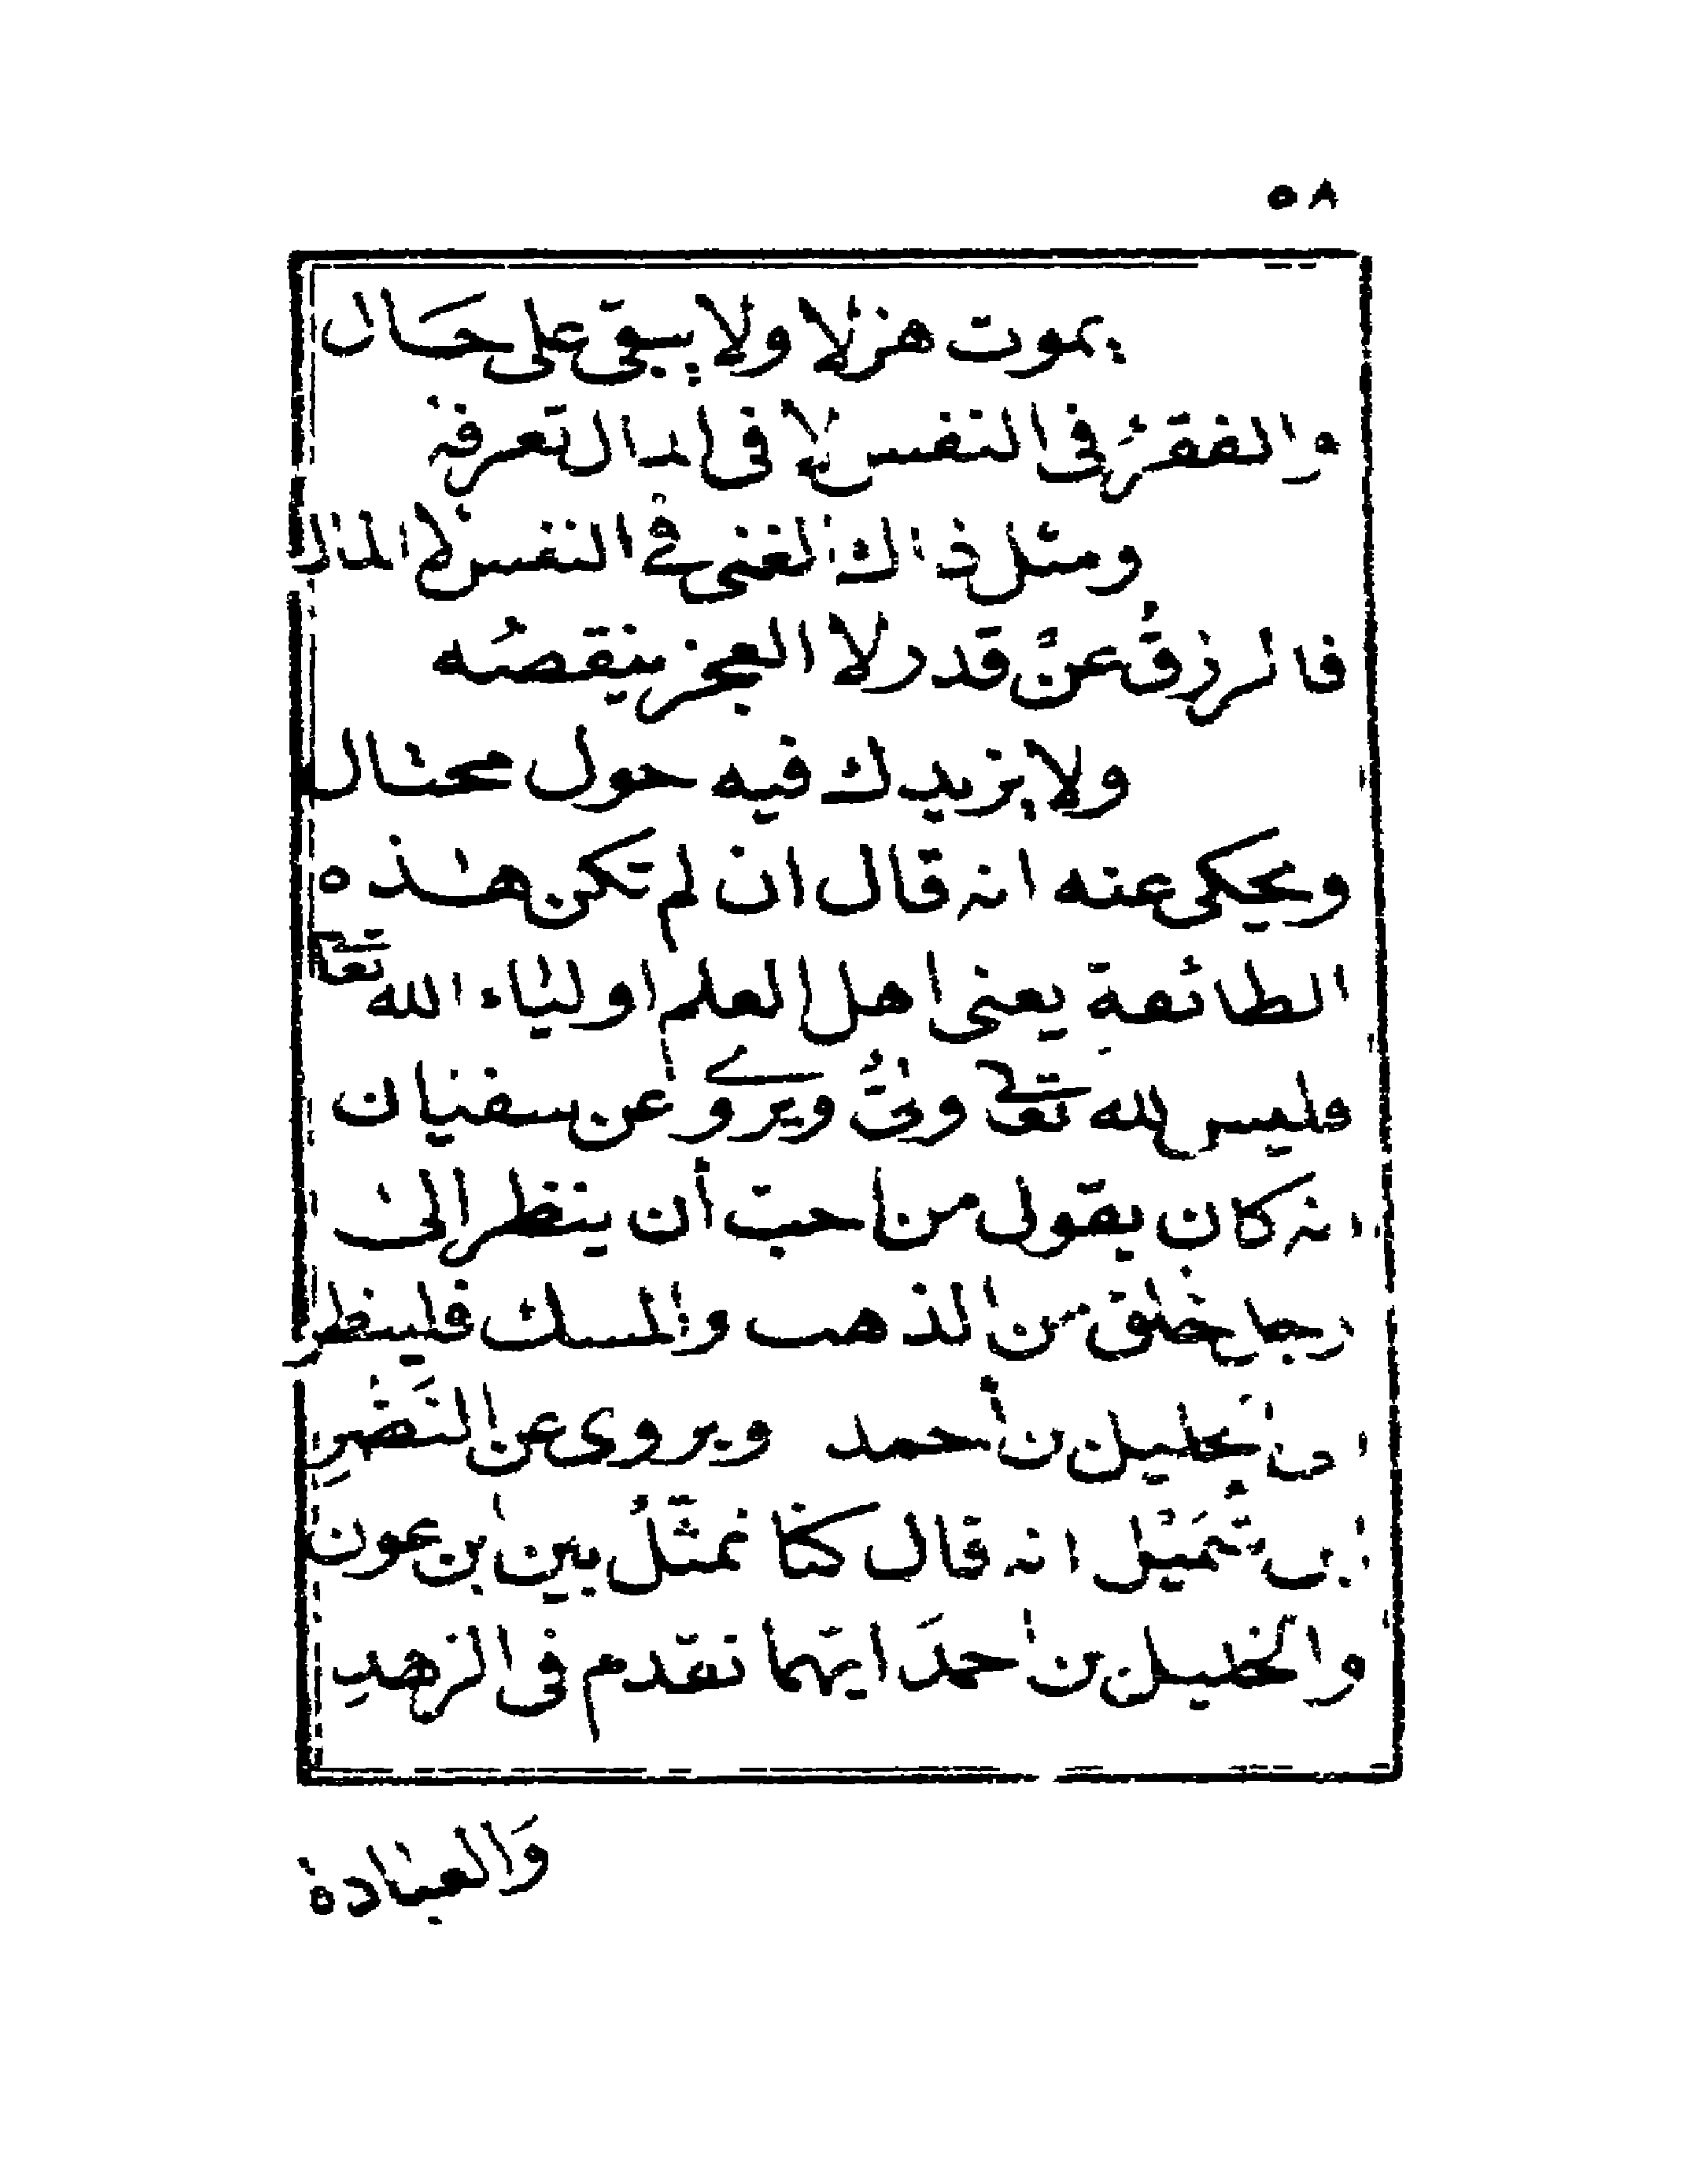 ٥٨
يموت هزلا ولا يبقى على حَال
والفقرُ فى النفس لا فى المال تعرفه
ومثل ذاك الغنى في النفس لا المال
فالرزقُ عنْ قدر لا العجز ينقصُه
ولا يزيدك فيه حول محتال
ويحكى عنه انه قال ان لم تكن هذه
الطائفة يعنى اهل العلم اولياء الله تعالى
فليس لله تعالى ولىٌّ ويروے عن سفيان
انه كان يقول من احبّ أن ينظر الى
رجل خلق من الذهب والمسك فلينظر
الى الخليل بن أحمد ويروى عن النَضْرِ
ابن شُمَيْل انه قال كنا نمثّلُ بين ابن عون
والخليل بن احمدَ ايّهما نقدم فى الزهدِ
وَالعبادة